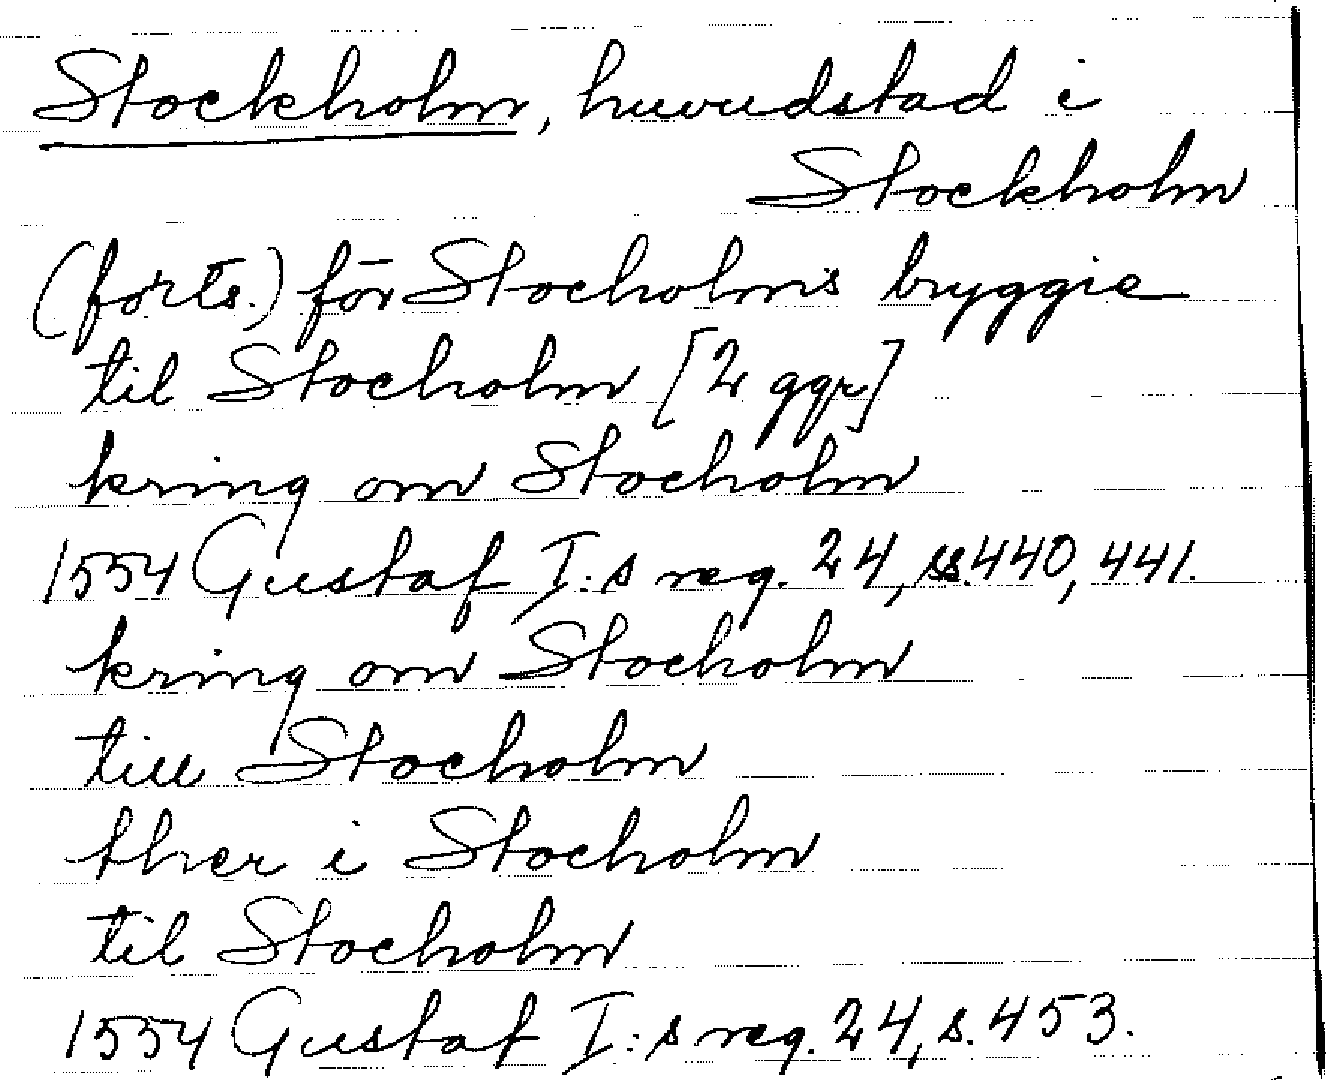 Stockholm, huvudstad i
Stockholm
(forts.) för Stocholms bryggie
til Stocholm [2 ggr]
kring om Stocholm
1554 Gustaf I:s reg. 24, ss. 440, 441.
kring om Stocholm
till Stocholm
ther i Stocholm
til Stocholm
1554 Gustaf I:s reg. 24, s. 453.